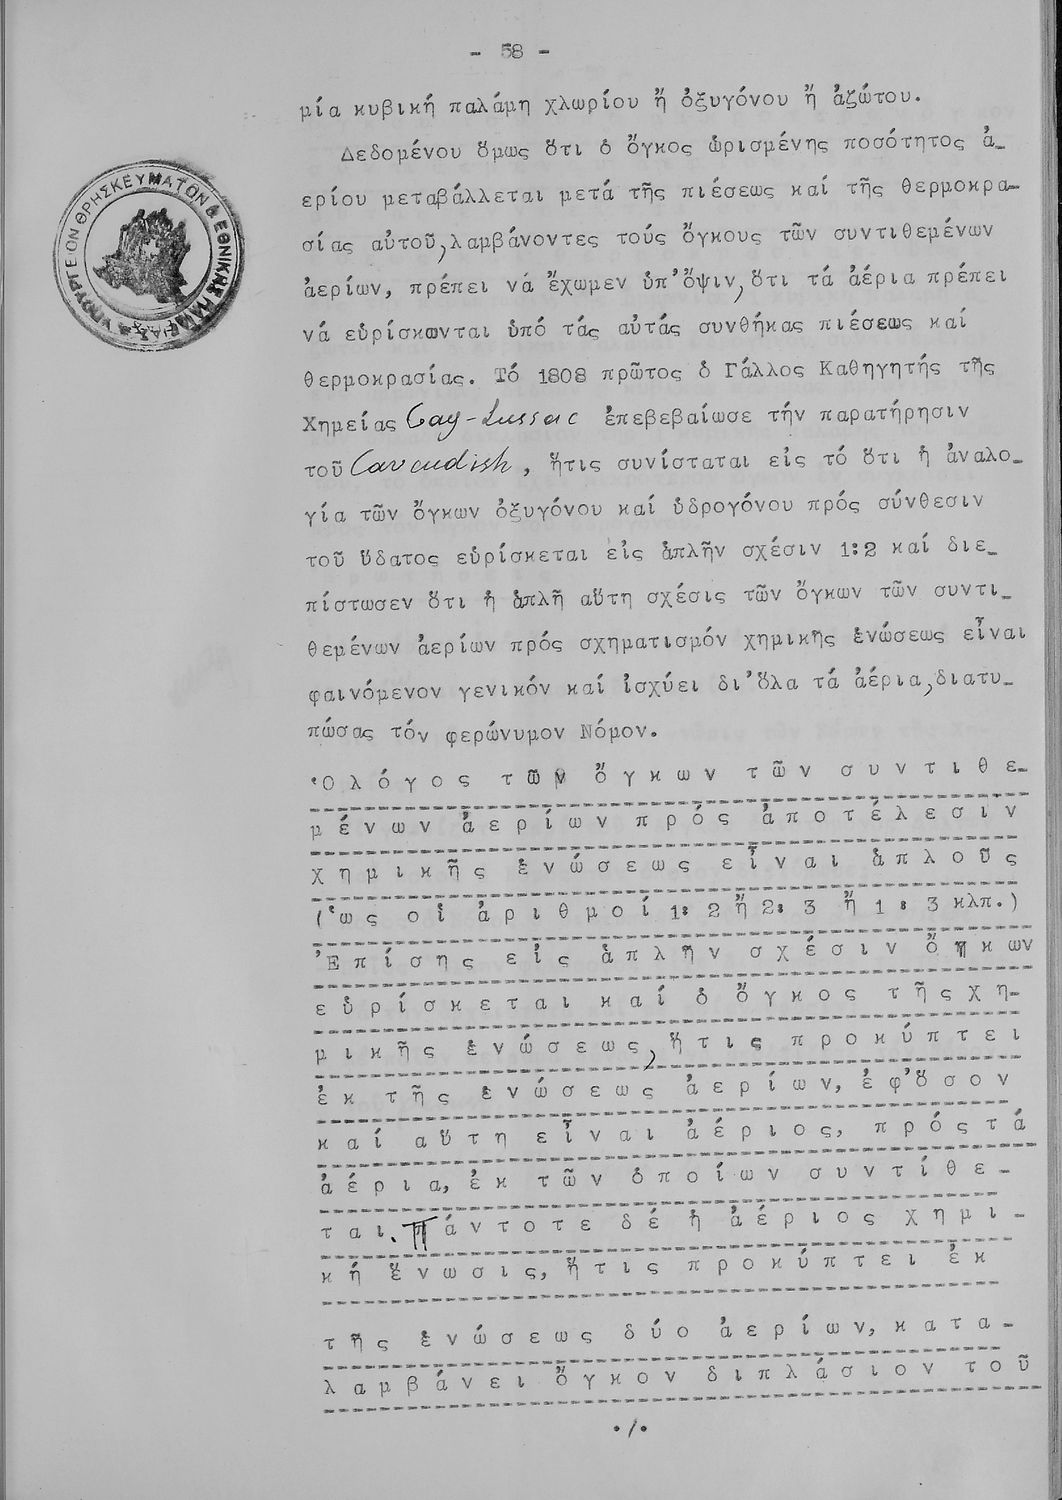 - 58 -
μία κυβική παλάμη χλωρίου ἤ ὀξυγόνου ἤ ἀζώτου.
Δεδομένου ὅμως ὅτι ὁ ὄγκος ὡρισμένης ποσότητος ἀ_
ερίου μεταβάλλεται μετά τῆς πιέσεως καί τῆς θερμοκρα-
σίας αὐτοῦ, λαμβάνοντες τούς ὄγκους τῶν συντιθεμένων
ἀερίων, πρέπει νά ἔχωμεν ὑπ' ὄψιν, ὅτι τά ἀέρια πρέπει
νά εὑρίσκωνται ὑπό τάς αὐτάς συνθήκας πιέσεως καί
θερμοκρασίας. Τό 1808 πρῶτος ὁ Γάλλος Καθηγητής τῆς
Χημείας Gay-Lussac ἐπεβεβαίωσε τήν παρατήρησιν
τοῦ Cavendish, ἥτις συνίσταται εἰς τό ὅτι ἡ ἀναλο_
γία τῶν ὄγκων ὀξυγόνου καί ὑδρογόνου πρός σύνθεσιν
τοῦ ὕδατος εὑρίσκεται εἰς ἁπλῆν σχέσιν 1:2 καί διε_
πίστωσεν ὅτι ἡ ἁπλῆ αὕτη σχέσις τῶν ὄγκων τῶν συντι_
θεμένων ἀερίων πρός σχηματισμόν χημικῆς ἑνώσεως εἶναι
φαινόμενον γενικόν καί ἰσχύει δι' ὅλα τά ἀέρια, διατυ_
πώσας τόν φερώνυμον Νόμον.
Ὁ λόγος τῶν ὄγκων τῶν συντιθε-
μένων ἀερίων πρός ἀποτέλεσιν
χημικῆς ἑνώσεως εἶναι ἁπλοῦς
(ὡς οἱ ἀριθμοί 1:2 ἤ 2:3 ἤ 1:3 κλπ.)
Ἐπίσης εἰς ἁπλῆν σχέσιν ὄγκων
εὑρίσκεται καί ὁ ὄγκος τῆς χη-
μικῆς ἑνώσεως, ἥτις προκύπτει
ἐκ τῆς ἑνώσεως ἀερίων, ἐφ' ὅσον
καί αὕτη εἶναι ἀέριος, πρός τά
ἀέρια, ἐκ τῶν ὁποίων συντίθε-
ται. Πάντοτε δέ ἡ ἀέριος χημι-
κή ἕνωσις, ἥτις προκύπτει ἐκ
τῆς ἑνώσεως δύο ἀερίων, κατα-
λαμβάνει ὄγκον διπλάσιον τοῦ
./.
ΥΠΟΥΡΓΕΙΟΝ ΘΡΗΣΚΕΥΜΑΤΩΝ & ΕΘΝΙΚΗΣ